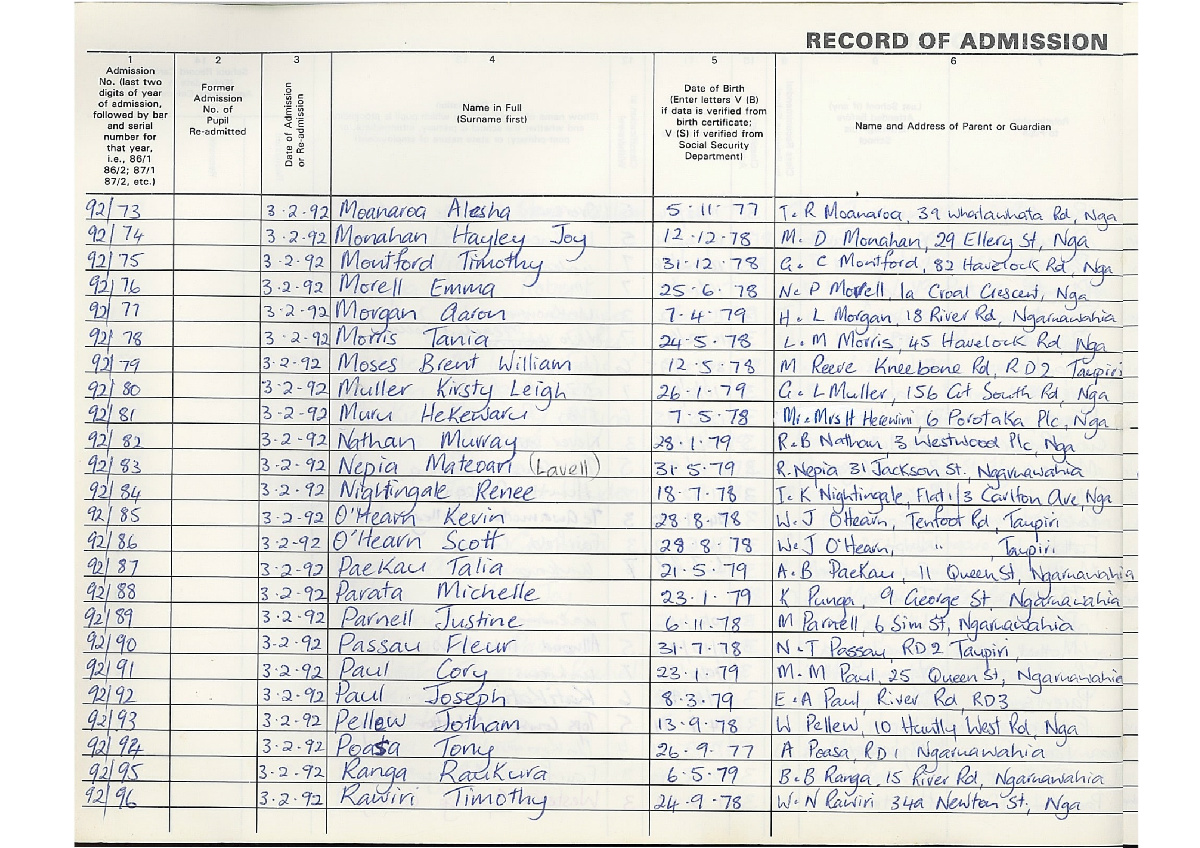 RECORD OF ADMISSION
1 2 3 4 5 6
Admission No. (last two digits of year of admission, followed by bar and serial number for that year, i.e., 86/1 86/2; 87/1 87/2, etc.)
Former Admission No. of Pupil Re-admitted
Date of Admission or Re-admission
Name in Full (Surname first)
Date of Birth (Enter letters V (B) if data is verified from birth certificate; V (S) if verified from Social Security Department)
Name and Address of Parent or Guardian
92/73 3·2·92 Moanaroa Alesha 5·11·77 T & R Moanaroa, 39 Whatawhata Rd, Nga
92/74 3·2·92 Monahan Hayley Joy 12·12·78 M & D Monahan, 29 Ellery St, Nga
92/75 3·2·92 Montford Timothy 31·12·78 G & C Montford, 82 Havelock Rd, Nga
92/76 3·2·92 Morell Emma 25·6·78 N & P Morell, 1a Croal Crescent, Nga
92/77 3·2·92 Morgan Aaron 7·4·79 H & L Morgan, 18 River Rd, Ngaruawahia
92/78 3·2·92 Morris Tania 24·5·78 L & M Morris, 45 Havelock Rd, Nga
92/79 3·2·92 Moses Brent William 12·5·78 M Reeve Kneebone Rd, RD2 Taupiri
92/80 3·2·92 Muller Kirsty Leigh 26·1·79 G & L Muller, 156 Gt South Rd, Nga
92/81 3·2·92 Muru HeKewaru 7·5·78 Mr & Mrs H Herewini, 6 Porotaka Plc, Nga
92/82 3·2·92 Nathan Murray 28·1·79 R & B Nathan, 3 Westwood Plc, Nga
92/83 3·2·92 Nepia Mateoari (Lavell) 31·5·79 R. Nepia 31 Jackson St. Ngaruawahia
92/84 3·2·92 Nightingale Renee 18·7·78 I & K Nightingale, Flat 1/3 Carlton Ave, Nga
92/85 3·2·92 O'Hearn Kevin 28·8·78 W & J O'Hearn, Tenfoot Rd, Taupiri
92/86 3·2·92 O'Hearn Scott 28·8·78 W & J O'Hearn, " Taupiri
92/87 3·2·92 PaeKau Talia 21·5·79 A & B PaeKau, 11 Queen St, Ngaruawahia
92/88 3·2·92 Parata Michelle 23·1·79 K Punga, 9 George St, Ngaruawahia
92/89 3·2·92 Parnell Justine 6·11·78 M Parnell, 6 Sim St, Ngaruawahia
92/90 3·2·92 Passau Fleur 31·7·78 N & T Passau, RD2 Taupiri,
92/91 3·2·92 Paul Cory 23·1·79 M & M Paul, 25 Queen St, Ngaruawahia
92/92 3·2·92 Paul Joseph 8·3·79 E & A Paul, River Rd, RD3
92/93 3·2·92 Pellew Jotham 13·9·78 W Pellew, 10 Huntly West Rd, Nga
92/94 3·2·92 Poasa Tony 26·9·77 A Poasa, RD1 Ngaruawahia
92/95 3·2·92 Ranga RauKura 6·5·79 B & B Ranga, 15 River Rd, Ngaruawahia
92/96 3·2·92 Rawiri Timothy 24·9·78 W & N Rawiri 34a Newton St, Nga